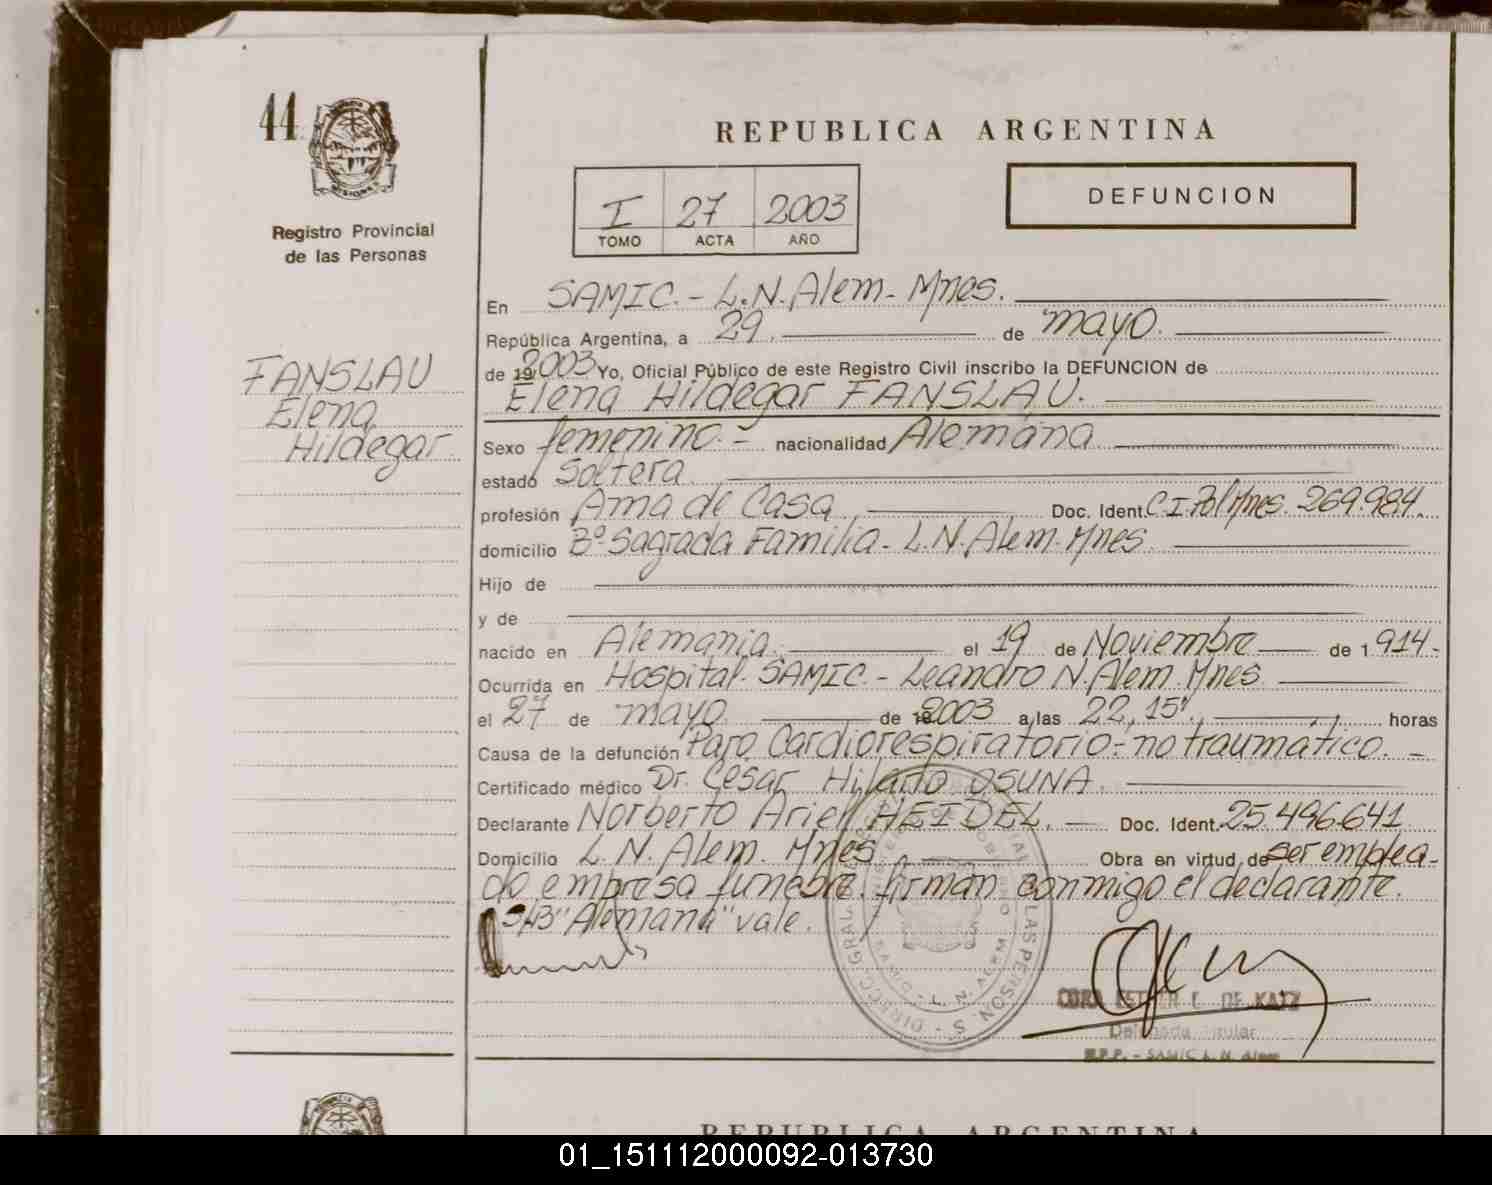 44
Registro Provincial
de las Personas
FANSLAU
Elena
Hildegar
REPUBLICA ARGENTINA
DEFUNCION
I 27 2003
TOMO ACTA AÑO
En SAMIC.- L.N. Alem- Mnes.
República Argentina, a 29 de mayo.
de 2003 Yo, Oficial Público de este Registro Civil inscribo la DEFUNCION de
Elena Hildegar FANSLAU.
Sexo femenino.- nacionalidad Alemana
estado Soltera
profesión Ama de Casa Doc. Ident. C.I.Pol Mnes. 269.984.
domicilio Bº Sagrada Familia- L.N. Alem- Mnes
Hijo de
y de
nacido en Alemania el 19 de Noviembre de 1 914-
Ocurrida en Hospital SAMIC.- Leandro N. Alem Mnes
el 27 de mayo de 2003 a las 22,15' horas
Causa de la defunción Paro Cardiorespiratorio- no traumático.-
Certificado médico Dr. César Hilario OSUNA.
Declarante Norberto Ariel HEIDEL.- Doc. Ident. 25.496.641
Domicilio L.N. Alem. Mnes Obra en virtud de ser emplea-
do empresa fúnebre. firman conmigo el declarante.
S/B "Alemana" vale.
L. N. ALEM
DE KATZ
Delegada Titular
R.P.P. - SAMIC L. N. Alem
REPUBLICA ARGENTINA
01_151112000092-013730